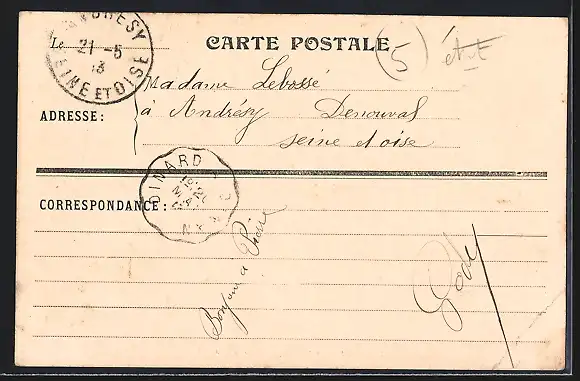 ANDRESY
21 -5
13
SEINE ET OISE
Le
CARTE POSTALE
(5)
ADRESSE:
Madame Lebossé
à Andrésy Denouval
Seine et oise
DINARD
CORRESPONDANCE:
Bonjour à Pierre